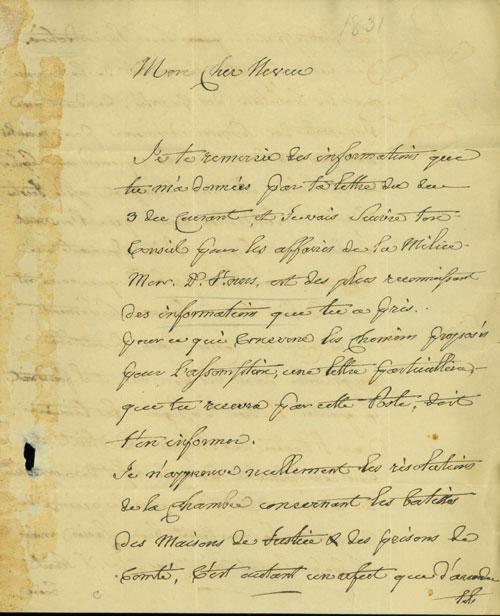 1831
Mon Cher Neveu
Je te remercie des informations que
tu m'a données par ta lettre du
3 du Courant, et Je vais Suivre ton
Conseil pour les affaires de la Milice
Monr. D. est des plus reconnissant
des informations que tu a pris..
pour ce qui Concerne les Chemins proposés
pour L'assomption, une lettre particulliere,
que tu recevra par cette Poste, doit
t'en informer.
Je n'approuve nullement les résolutions
de la Chambre concernant les batisses
des Maisons de Justice & des prisons de
Comté, C'est autant un effet que d'